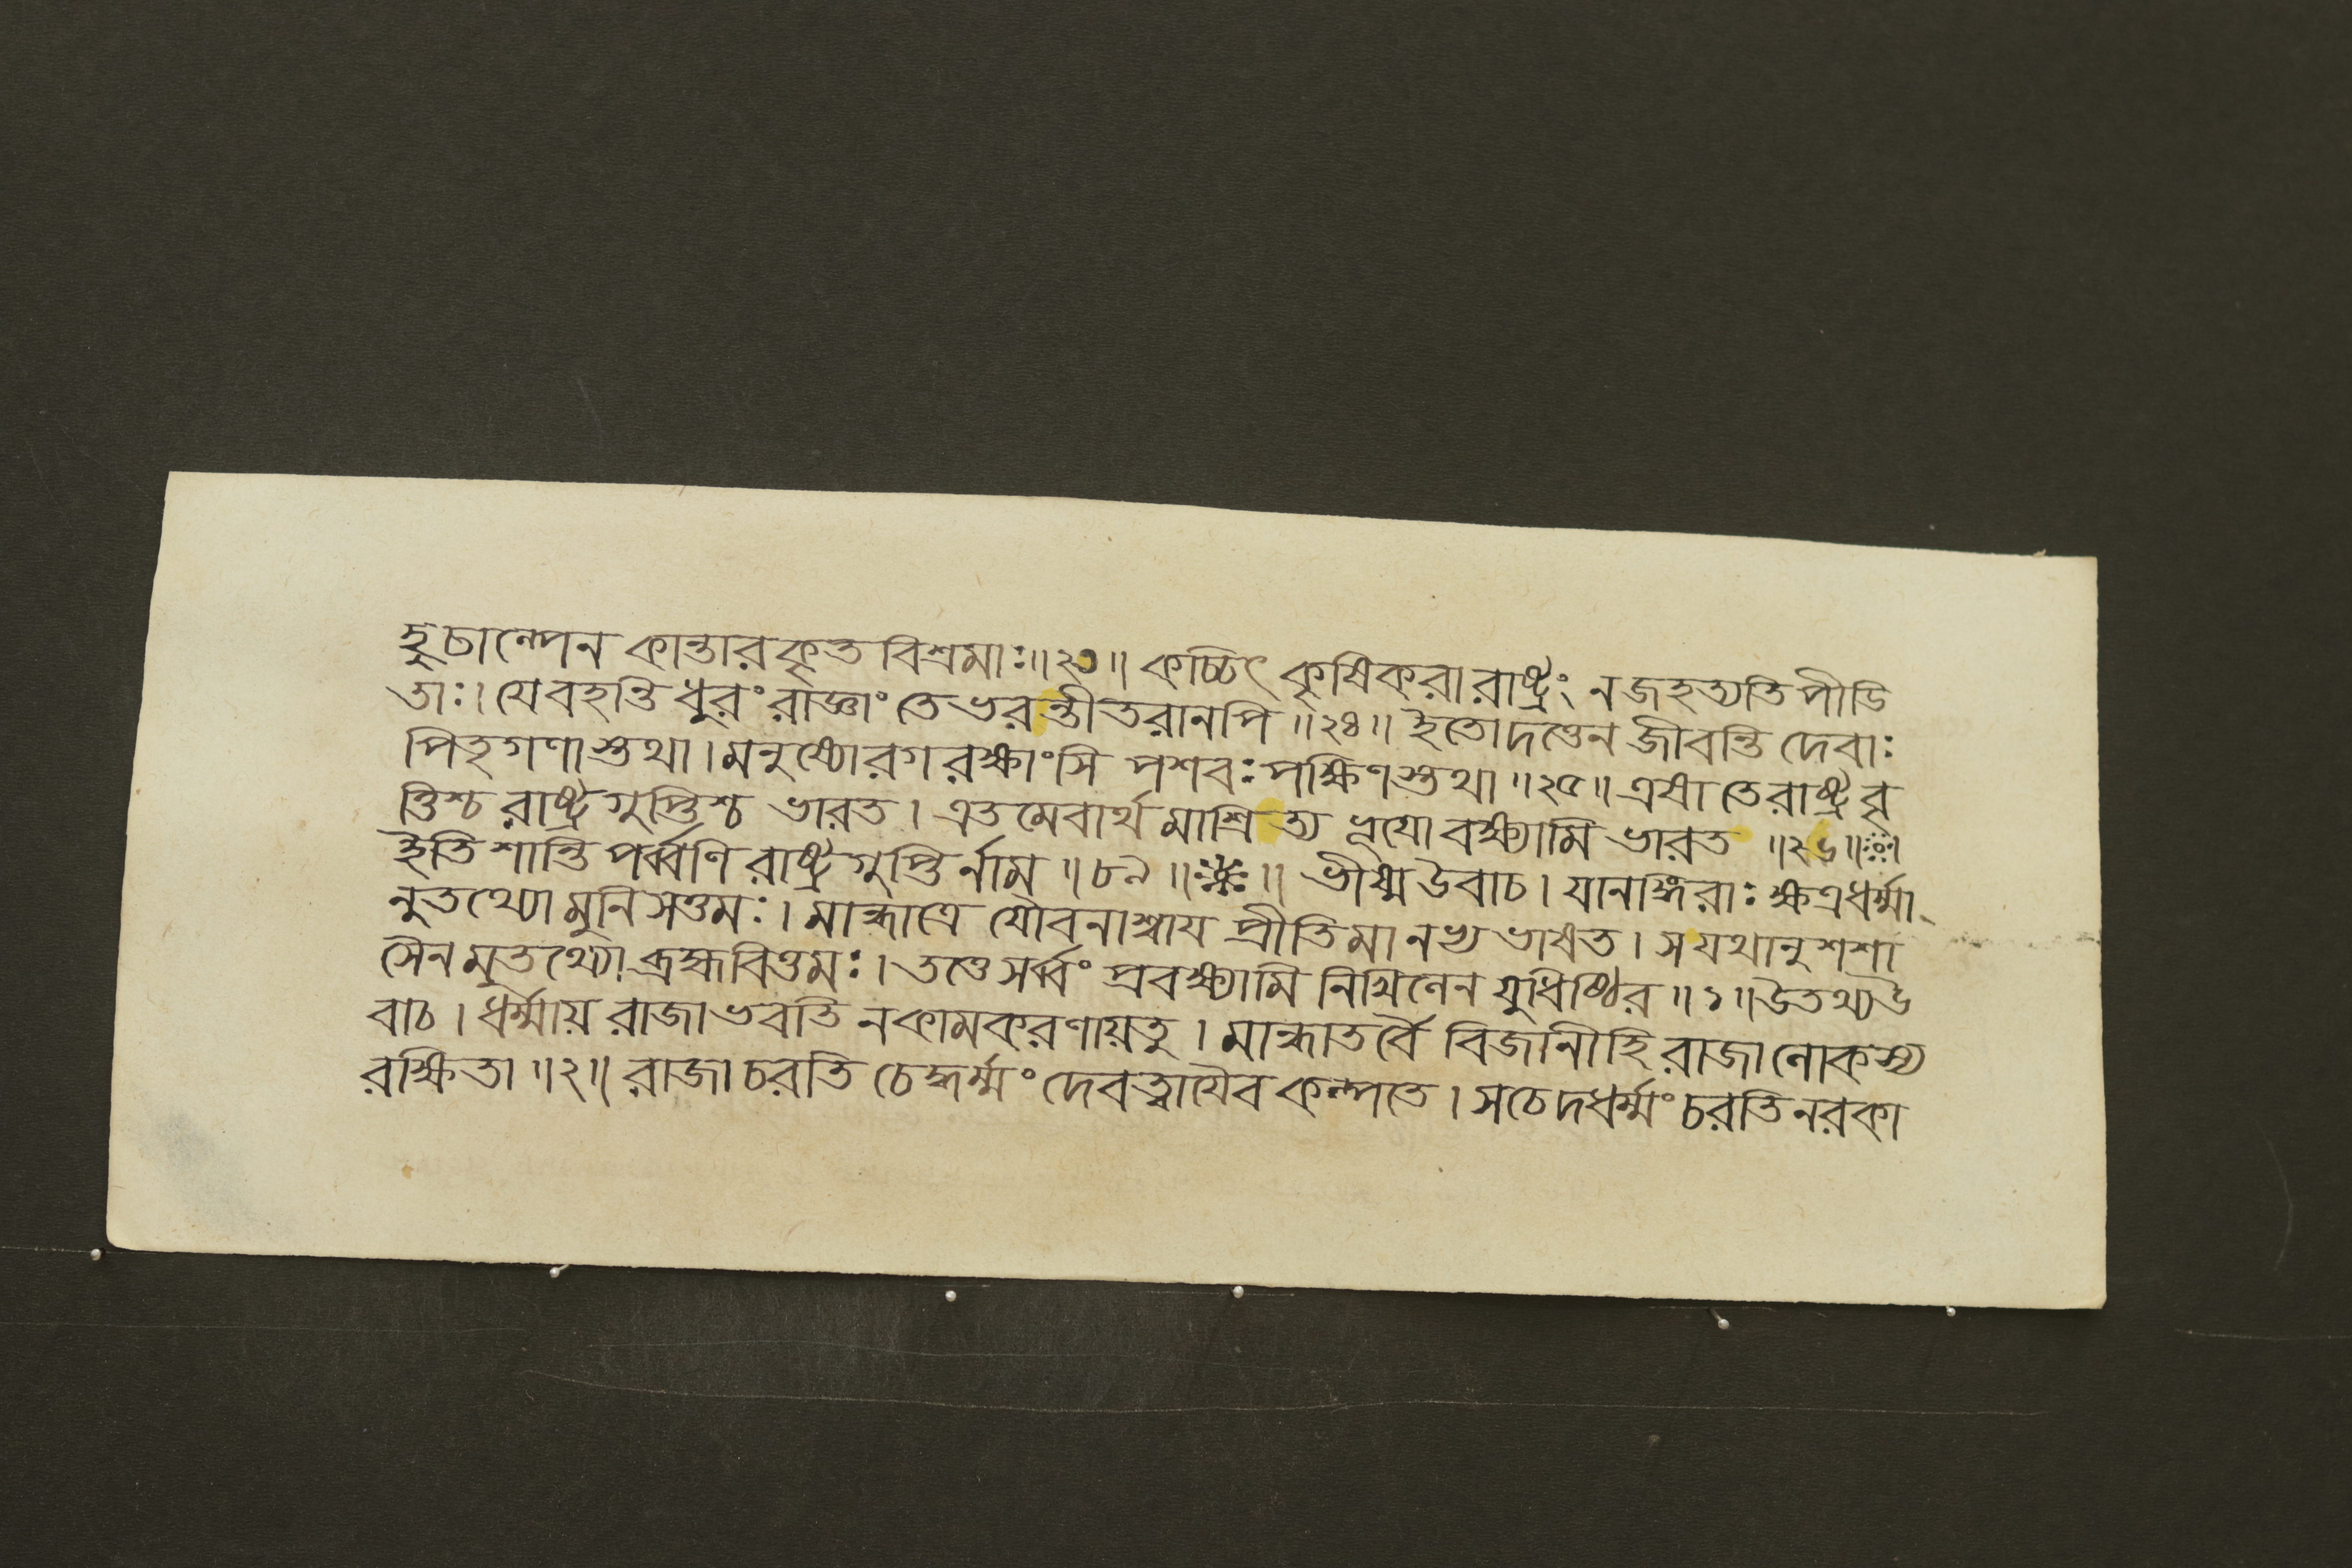 হুচাল্পেন কান্তারকৃত বিশ্রমাঃ॥২৩॥ কচ্চিৎ কৃষিকরা রাষ্ট্রং ন জহত্যতি পীডি
তাঃ। যে বহন্তি ধুরং রাজ্ঞাং তে ভরন্তীতরানপি ॥২৪॥ ইতোদত্তেন জীবন্তি দেবাঃ
পিতৃগণাস্তথা। মনুষ্যোরগরক্ষাংসি পশবঃ পক্ষিণস্তথা ॥২৫॥ এষা তে রাষ্ট্রবৃ
ত্তিশ্চ রাষ্ট্রগুপ্তিশ্চ ভারত। এতমেবার্থমাশ্রিত্য ভূযো বক্ষ্যামি ভারত ॥২৬॥ঃ৹ঃ।
ইতি শান্তি পর্ব্বণি রাষ্ট্রগুপ্তির্নাম ॥৮৯॥※॥ ভীষ্ম উবাচ। যানঙ্গিরাঃ ক্ষত্রধর্ম্মা
নুতথ্যো মুনিসত্তমঃ। মান্ধাত্রে যৌবনাশ্বায প্রীতিমানভ্য ভাষত। স যথানুশশা
সৈনমুতথ্যো ব্রহ্মবিত্তমঃ। তত্তে সর্ব্বং প্রবক্ষ্যামি নিখিলেন যুধিষ্ঠির ॥১॥ উতথ্য উ
বাচ। ধর্ম্মায় রাজা ভবতি ন কামকরণায়তু। মান্ধাতর্বৈ বিজানীহি রাজা লোকস্য
রক্ষিতা ॥২॥ রাজা চরতি চেদ্ধর্ম্মং দেবত্বাযৈব কল্পতে। স চেদধর্ম্মং চরতি নরকা